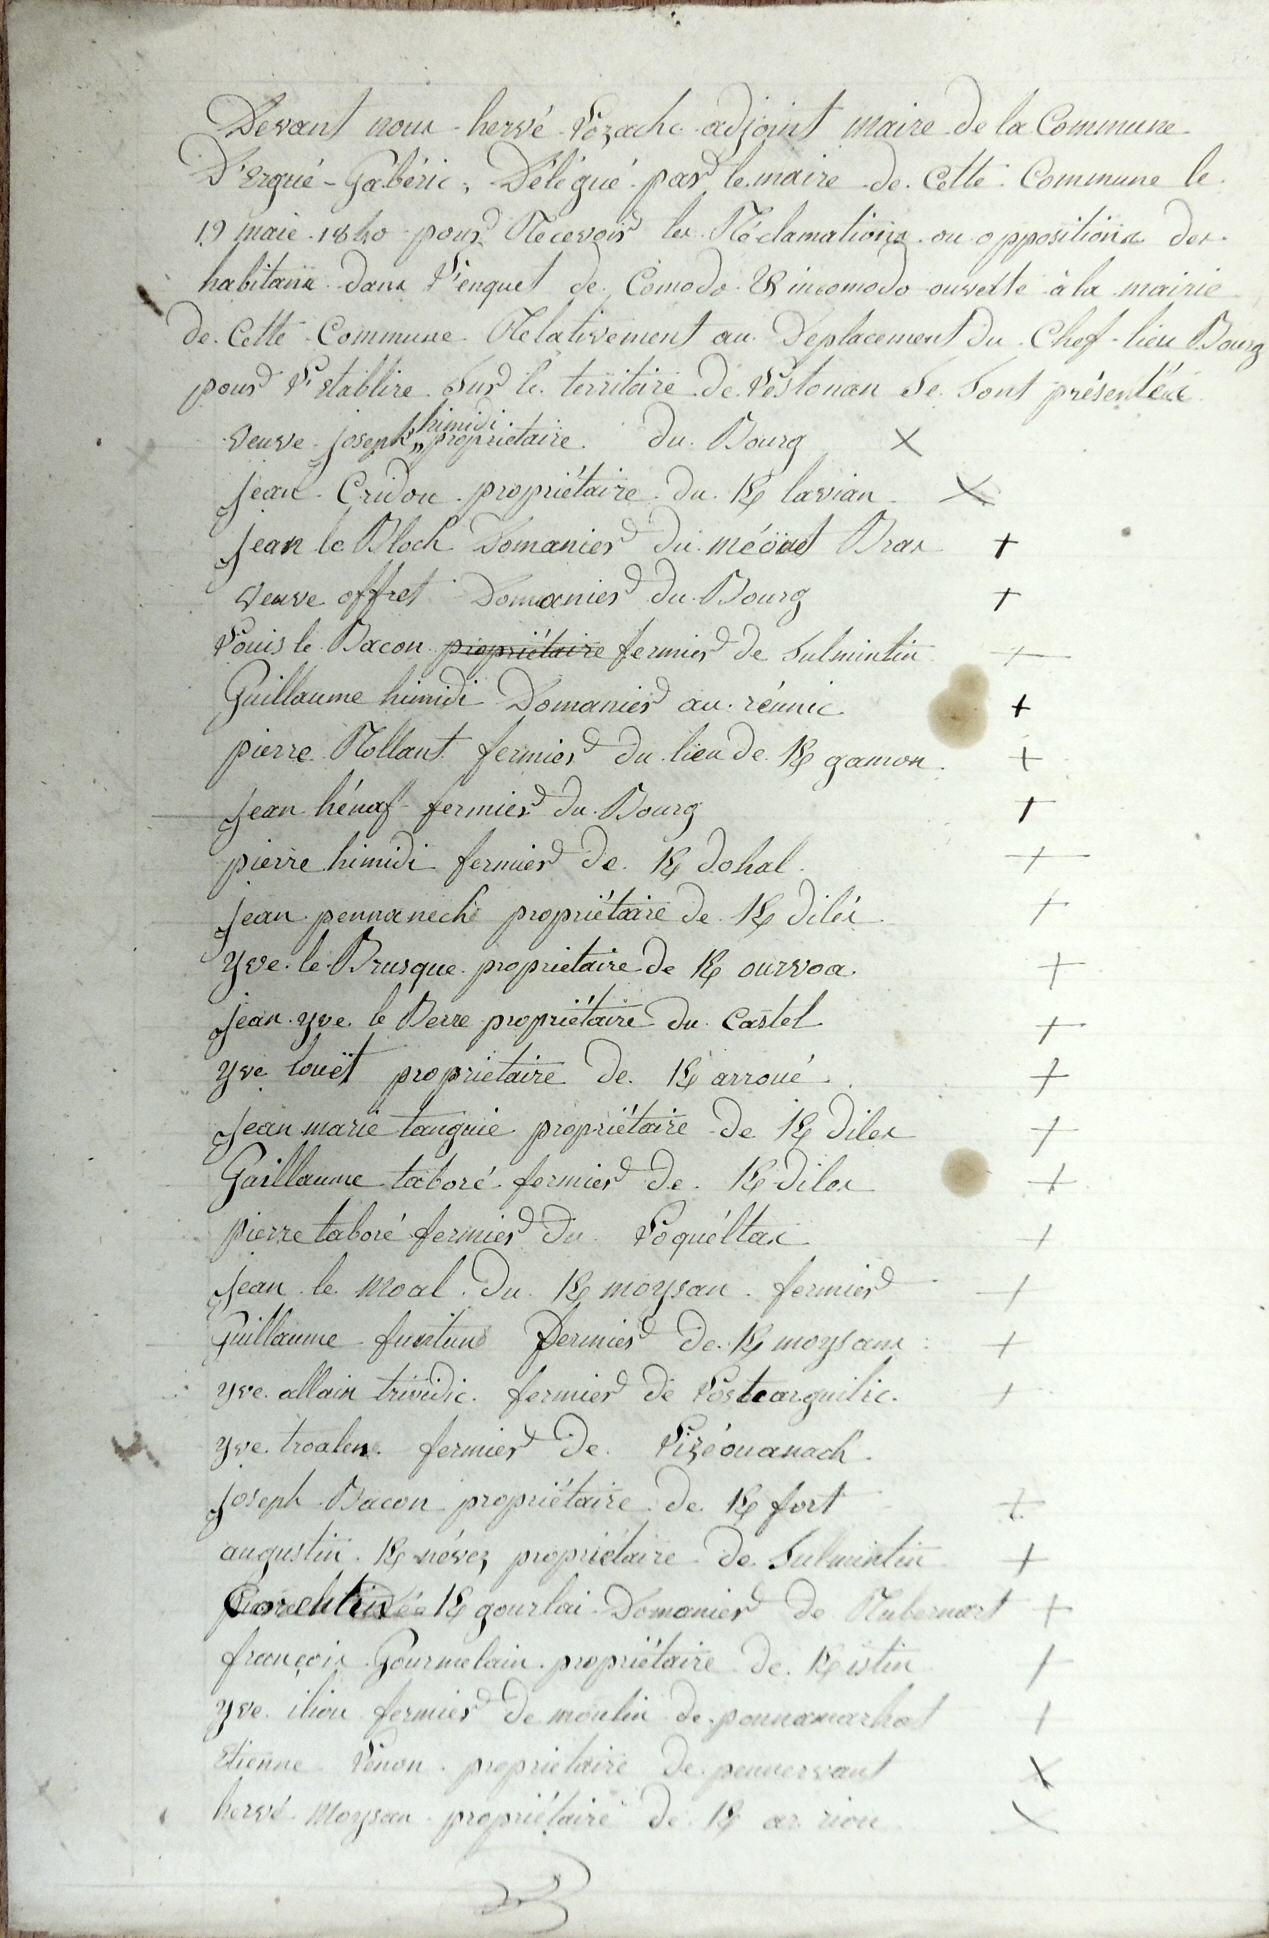 Devant nous hervé Lozach adjoint maire de la Commune
D'Ergué-Gabéric, Délégué par le maire de Cette Commune le
19 maie 1840 pour Recevoir les Réclamations ou oppositions des
habitans dans l'enquet de Comodo & incomodo ouverte à la mairie
de Cette Commune Relativement au Déplacement Du Chef-lieu Bourg
pour l'Etablire Sur le territoire de Lestonan Se Sont présentéss
himidi
veuve joseph „ propriétaire du Bourg X
jean Cridou propriétaire du K/ lavian X
jean le Bloch Domanier du méouet Bras +
veuve offret Domanier du Bourg +
Louis le Bacon propriétaire fermier de Sulmintin +
Guillaume himidi Domanier au réunic +
pierre Rollant fermier du lieu de K/ gamon +
jean hénaf fermier du Bourg +
pierre himidi fermier de K/ dohal +
jean pennanech propriétaire de K/ dilés +
yve le Brusque propriétaire de K/ ourvoa +
jean yve le Berre propriétaire du Castel +
yve louët propriétaire de K/ arroué +
jean marie tanguie propriétaire de K/ diles +
Guillaume taboré fermier de K/ diles +
pierre taboré fermier du Loquéltas +
jean le moal du K/ moysan fermier +
Guillaume fermier de K/ moysans +
yve allain trividic fermier de +
yve troalen fermier de Lizéouanach
joseph Bacon propriétaire de K/ fort +
augustin K/ névez propriétaire de Sulmintin +
K/ gourlai Domanier de +
françois Gourmelain propriétaire de K/ istin +
yve iliou fermier de moulin de pennamarhat +
Etienne propriétaire de pennervant X
hervé moysan propriétaire de K/ ar riou X